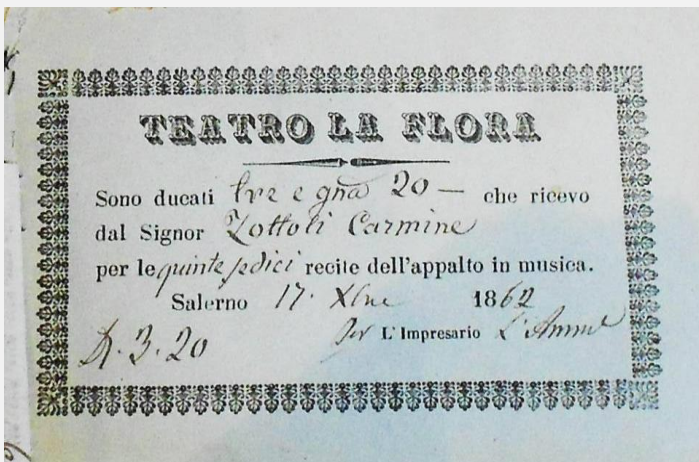 TEATRO LA FLORA
Sono ducati tre e gna 20 — che ricevo
dal Signor Zottoli Carmine
per le quinte sedici recite dell'appalto in musica.
Salerno 17. Xbre 1862
D. 3. 20
per L'Impresario